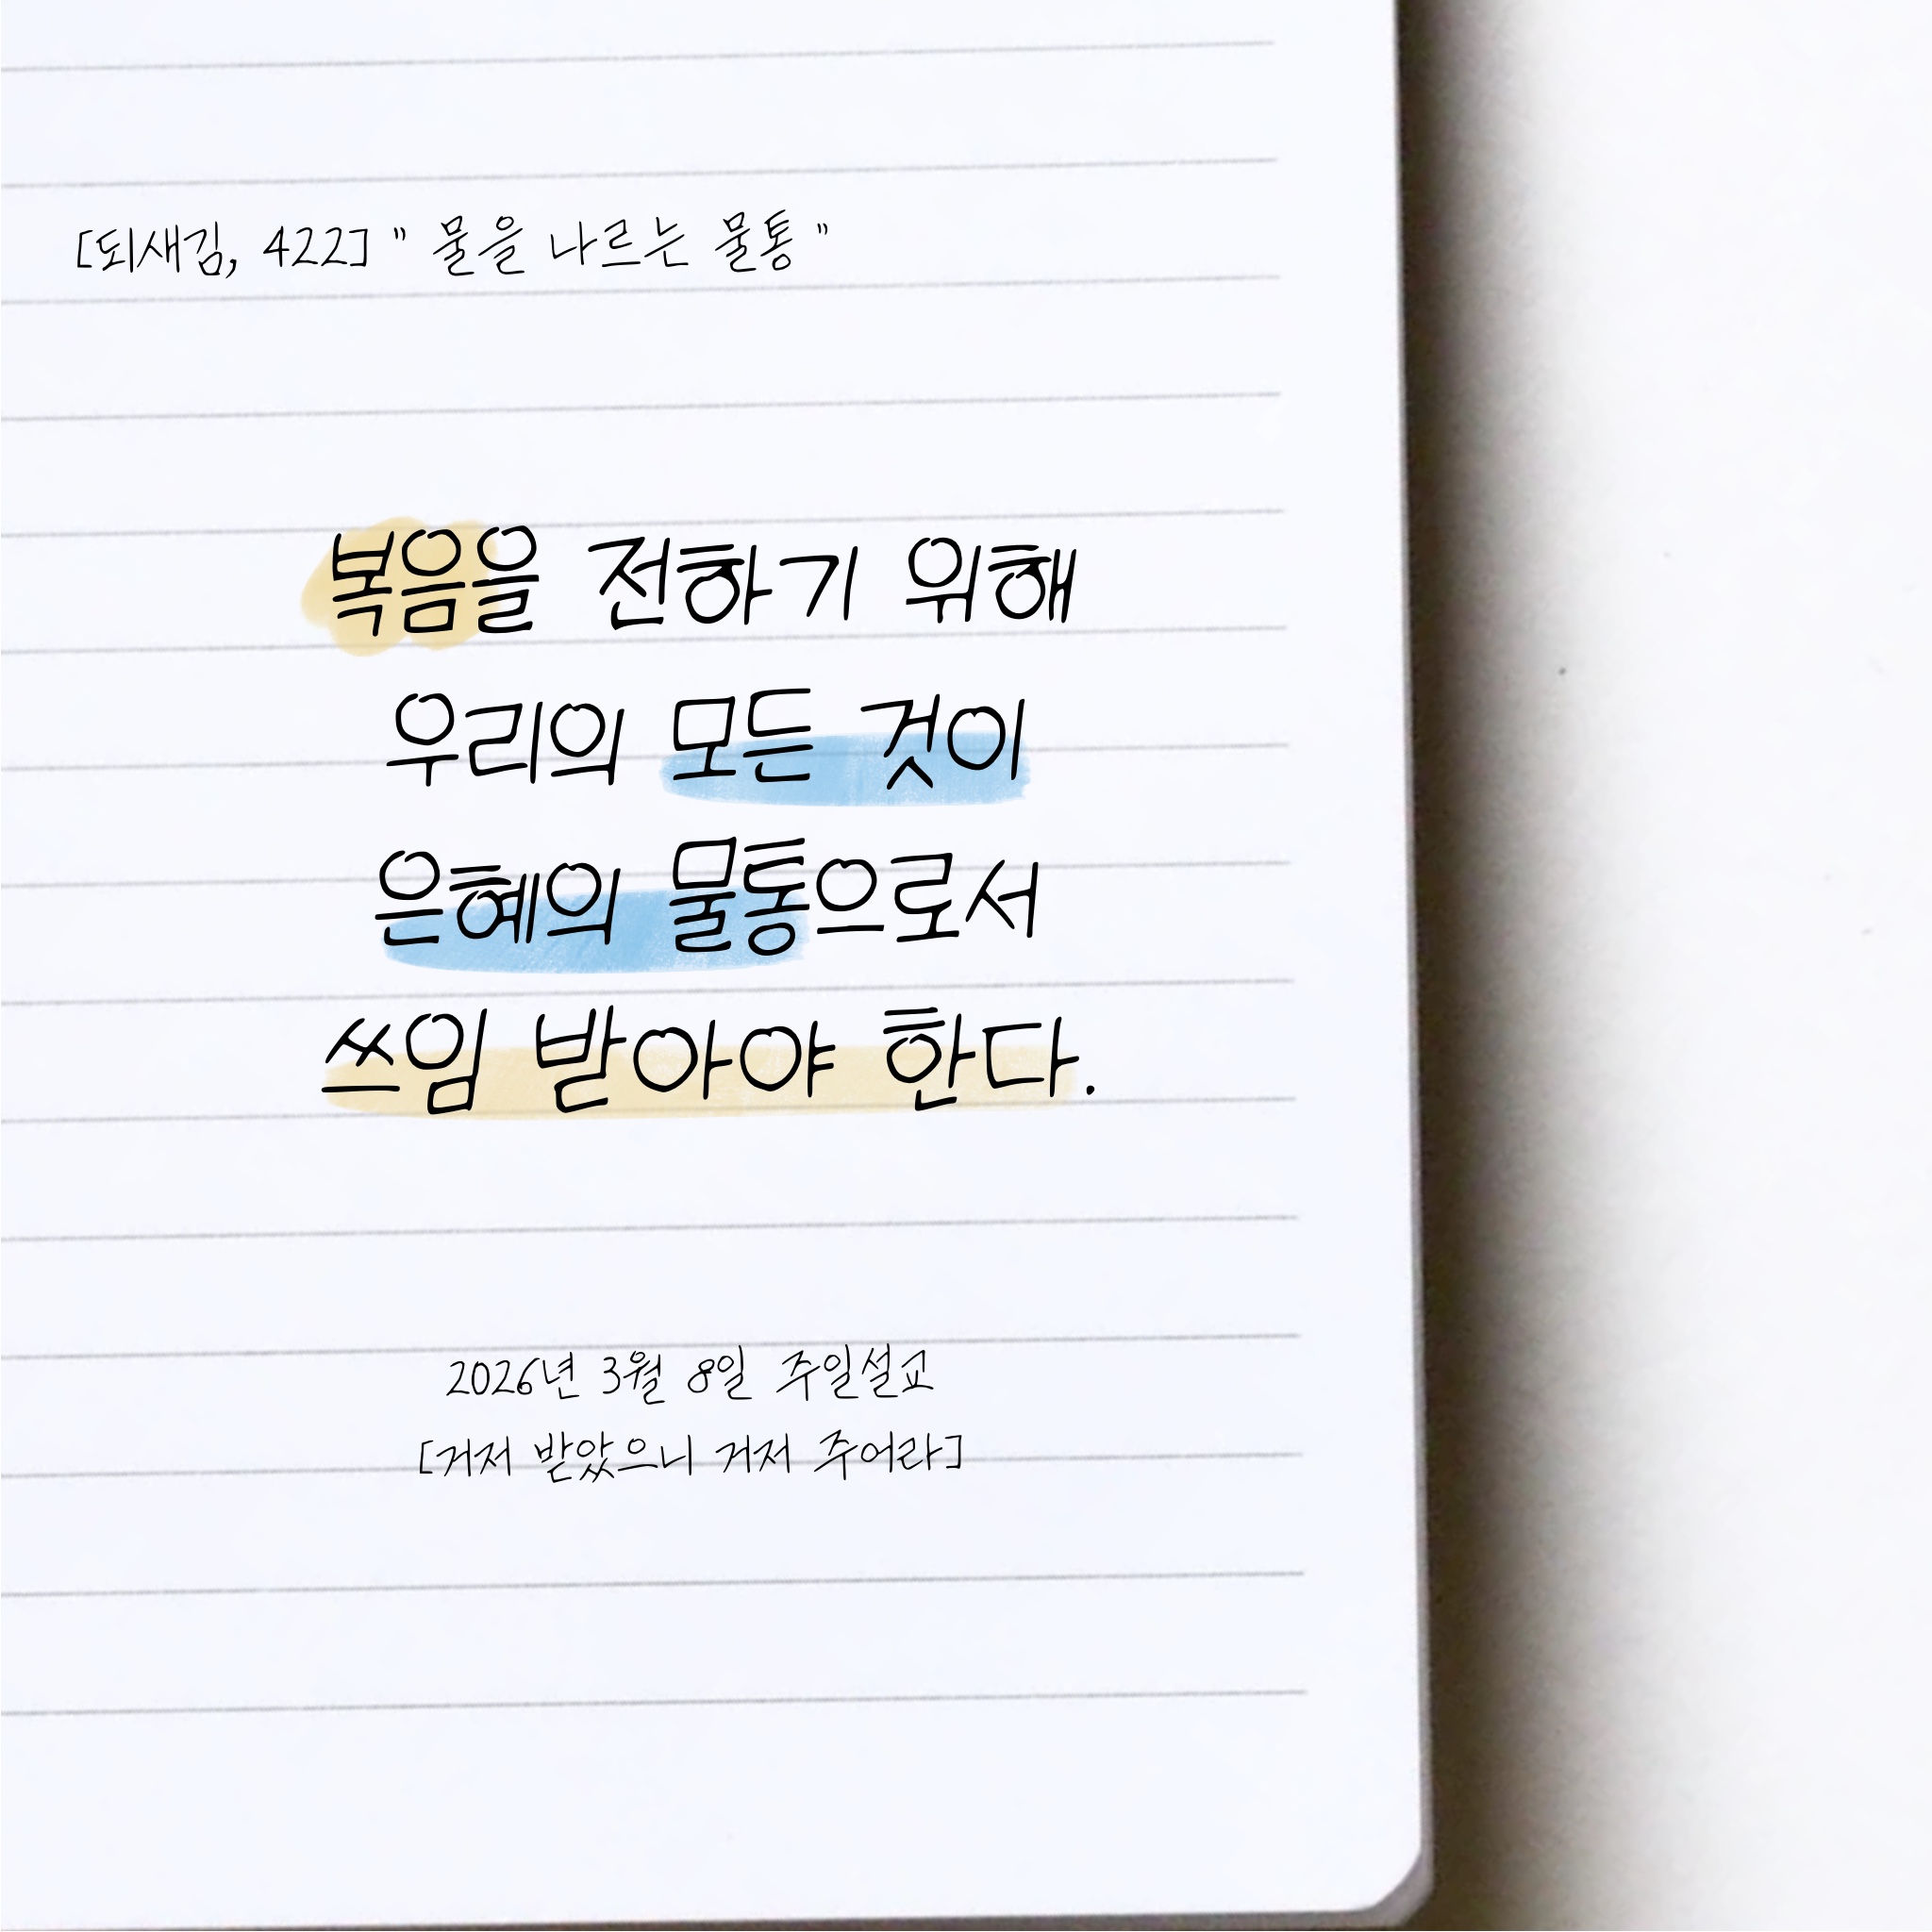 [되새김, 422] " 물을 나르는 물통 "
복음을 전하기 위해
우리의 모든 것이
은혜의 물통으로서
쓰임 받아야 한다.
2026년 3월 8일 주일설교
[거저 받았으니 거저 주어라]